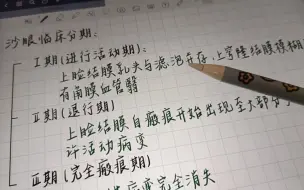 沙眼临床分期：
Ⅰ期（进行活动期）：
上睑结膜乳头与滤泡并存，上穹隆结膜模糊
有角膜血管翳
Ⅱ期（退行期）
上睑结膜自瘢痕开始出现至大部分
许活动病变
Ⅲ期（完全瘢痕期）
病变完全消失